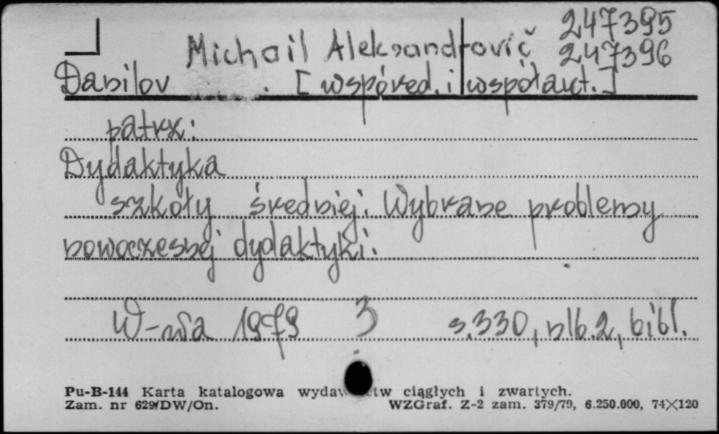 247395
Michail Aleksandrovič 247396
Danilov [współred. i współaut.]
patrz:
Dydaktyka
szkoły średniej: Wybrane problemy
nowoczesnej dydaktyki:
W-wa 1979 3 s. 330, nlb. 2, bibl.
Pu-B-144 Karta katalogowa wydawnictw ciągłych i zwartych.
Zam. nr 629/DW/On. WZGraf. Z-2 zam. 379/79, 6.250.000, 74×120